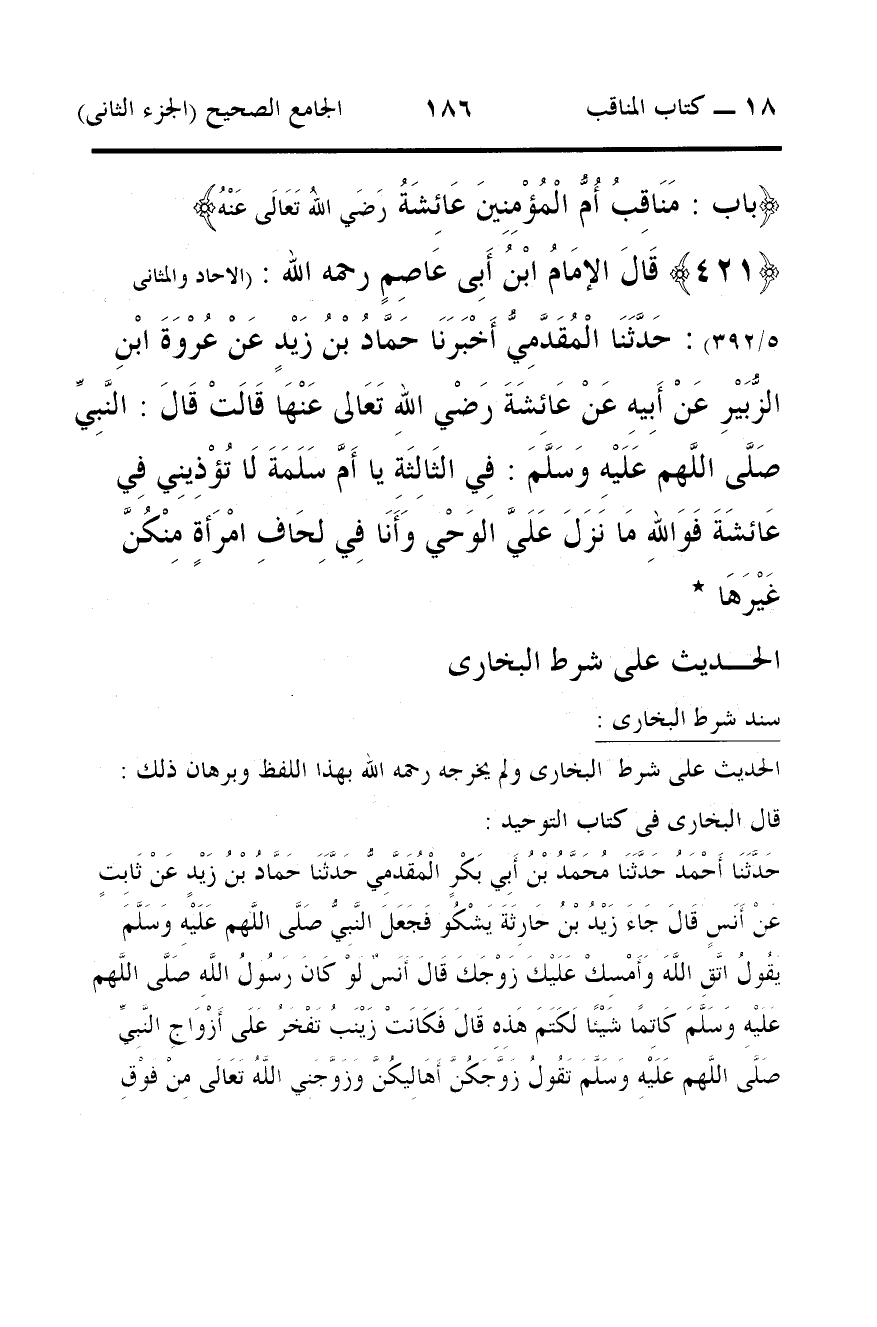 ١٨ ــ كتاب المناقب ١٨٦ الجامع الصحيح (الجزء الثانى)
﴿باب : مَنَاقِبُ أُمُّ الْمُؤْمِنِينَ عَائِشَةُ رَضَي اللهُ تَعَالَى عَنْهُ﴾
﴿٤٢١﴾ قَالَ الإمَامُ ابْنُ أَبى عَاصِمٍ رحمه الله : (الاحاد والمثانى
٣٩٢/٥) : حَدَّثَنَا الْمُقَدَّمِيُّ أَخْبَرَنَا حَمَّادُ بْنُ زَيْدٍ عَنْ عُرْوَةَ ابْنِ
الزُّبَيْرِ عَنْ أَبِيهِ عَنْ عَائِشَةَ رَضْي اللهِ تَعَالى عَنْهَا قَالَتْ قَالَ : النَّبِيِّ
صَلَّى اللهم عَلَيْهِ وَسَلَّمَ : فِي الثَالثَةِ يا أَمَّ سَلَمَةَ لَا تُؤْذِيني فِي
عَائشَةَ فَوَاللهِ مَا نَزَلَ عَلَيَّ الوَحْي وَأَنَا فِي لِحَافِ امْرَأةٍ مِنْكُنَّ
غَيْرَهَا *
الحـــديث على شرط البخارى
سند شرط البخارى :
الحديث على شرط البخارى ولم يخرجه رحمه الله بهذا اللفظ وبرهان ذلك :
قال البخارى فى كتاب التوحيد :
حَدَّثَنَا أَحْمَدُ حَدَّثَنَا مُحَمَّدُ بْنُ أَبِي بَكْرٍ الْمُقَدَّمِيُّ حَدَّثَنَا حَمَّادُ بْنُ زَيْدٍ عَنْ ثَابِتٍ
عَنْ أَنَسٍ قَالَ جَاءَ زَيْدُ بْنُ حَارِثَةَ يَشْكُو فَجَعَلَ النَّبِيُّ صَلَّى اللهم عَلَيْهِ وَسَلَّمَ
يَقُولُ اتَّقِ اللَّهَ وَأَمْسِكْ عَلَيْكَ زَوْجَكَ قَالَ أَنَسٌ لَوْ كَانَ رَسُولُ اللَّهِ صَلَّى اللهم
عَلَيْهِ وَسَلَّمَ كَاتِمًا شَيْئًا لَكَتَمَ هَذِهِ قَالَ فَكَانَتْ زَيْنَبُ تَفْخَرُ عَلَى أَزْوَاجِ النَّبِيِّ
صَلَّى اللهم عَلَيْهِ وَسَلَّمَ تَقُولُ زَوَّجَكُنَّ أَهَالِيكُنَّ وَزَوَّجَنِي اللَّهُ تَعَالَى مِنْ فَوْقِ